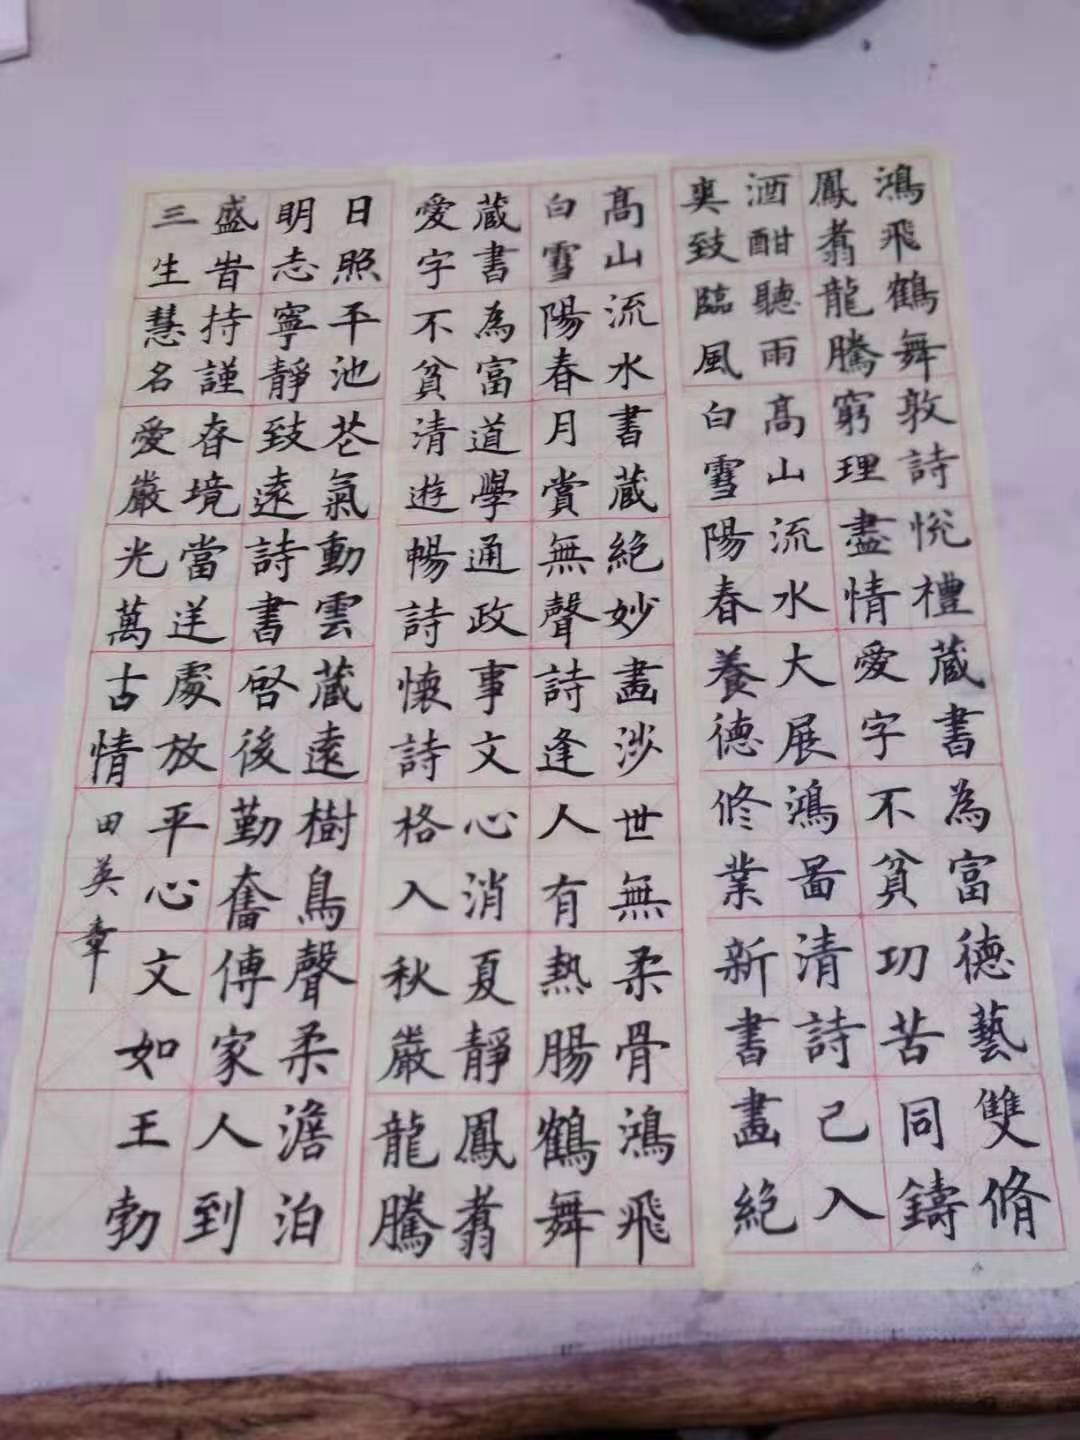 鴻飛鶴舞敦詩悅禮蔵書為富德藝雙脩
鳳翥龍騰窮理盡情愛字不貧功苦同鑄
酒酣聽雨髙山流水大展鴻啚清詩己入
爽致臨風白雪陽春養德修業新書畫絕
髙山流水書蔵絕妙畫涉世無柔骨鴻飛
白雪陽春月賞無聲詩逢人有熱腸鶴舞
蔵書為富道學通政事文心消夏靜鳳翥
愛字不貧清遊暢詩懷詩格入秋嚴龍騰
日照平池花氣動雲蔵遠樹鳥聲柔澹泊
明志寧靜致遠詩書啓後勤奮傳家人到
盛旹持謹昚境當逆處放平心文如王勃
三生慧名愛嚴光萬古情 田英章